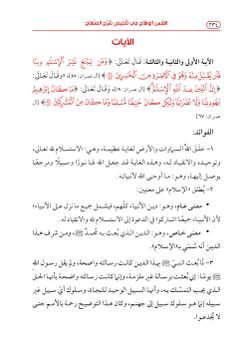 ٢٣٤
القبس الوهاج في تلخيص شرح المنهاج
الآيات
الآية الأولى والثانية والثالثة: قال تعالى: ﴿وَمَن يَبْتَغِ غَيْرَ الْإِسْلَامِ دِينًا
فَلَن يُقْبَلَ مِنْهُ وَهُوَ فِي الْآخِرَةِ مِنَ الْخَاسِرِينَ﴾ [آل عمران: ٨٥]، وقال تعالى:
﴿إِنَّ الدِّينَ عِندَ اللَّهِ الْإِسْلَامُ﴾ [آل عمران: ١٩]، وقال تعالى: ﴿مَا كَانَ إِبْرَاهِيمُ
يَهُودِيًّا وَلَا نَصْرَانِيًّا وَلَٰكِن كَانَ حَنِيفًا مُّسْلِمًا وَمَا كَانَ مِنَ الْمُشْرِكِينَ﴾ [آل
عمران: ٦٧]
الفوائد:
١- خلق الله السماوات والأرض لغاية عظيمة، وهي: الاستسلام لله تعالى،
وتوحيده والانقياد له، وهذه الغاية قد جعل الله لها نورًا وسبيلًا ومرجعًا
يوصل إليها، وهو: ما أوحى الله لأنبيائه.
٢- يُطلق «الإسلام» على معنيين:
• معنى عام، وهو: دين الأنبياء كلهم، فيشمل جميع ما نزل على الأنبياء؛
لأن الأنبياء جميعًا اشتركوا في الدعوة إلى الاستسلام لله والانقياد له.
• معنى خاص، وهو: الدين الذي بُعث به محمد ﷺ، ومن شرف هذا
الدين أنه سُمّي بـ«الإسلام».
٣- لما بُعث النبي ﷺ بهذا الدين كانت رسالته واضحة، ولم يقل رسول الله
ﷺ يومًا: إني بُعثت برسالة غير ملزمة، وإنما كانت رسالته واضحة بأنها الحق
الذي يجب التمسك به، وأنها السبيل الوحيد للنجاة، وسلوك أي سبيل غير
سبيله إنما هو سلوك سبيل إلى جهنم، وكان هذا التوضيح رحمة بالأمم حتى
لا يُخدعوا.